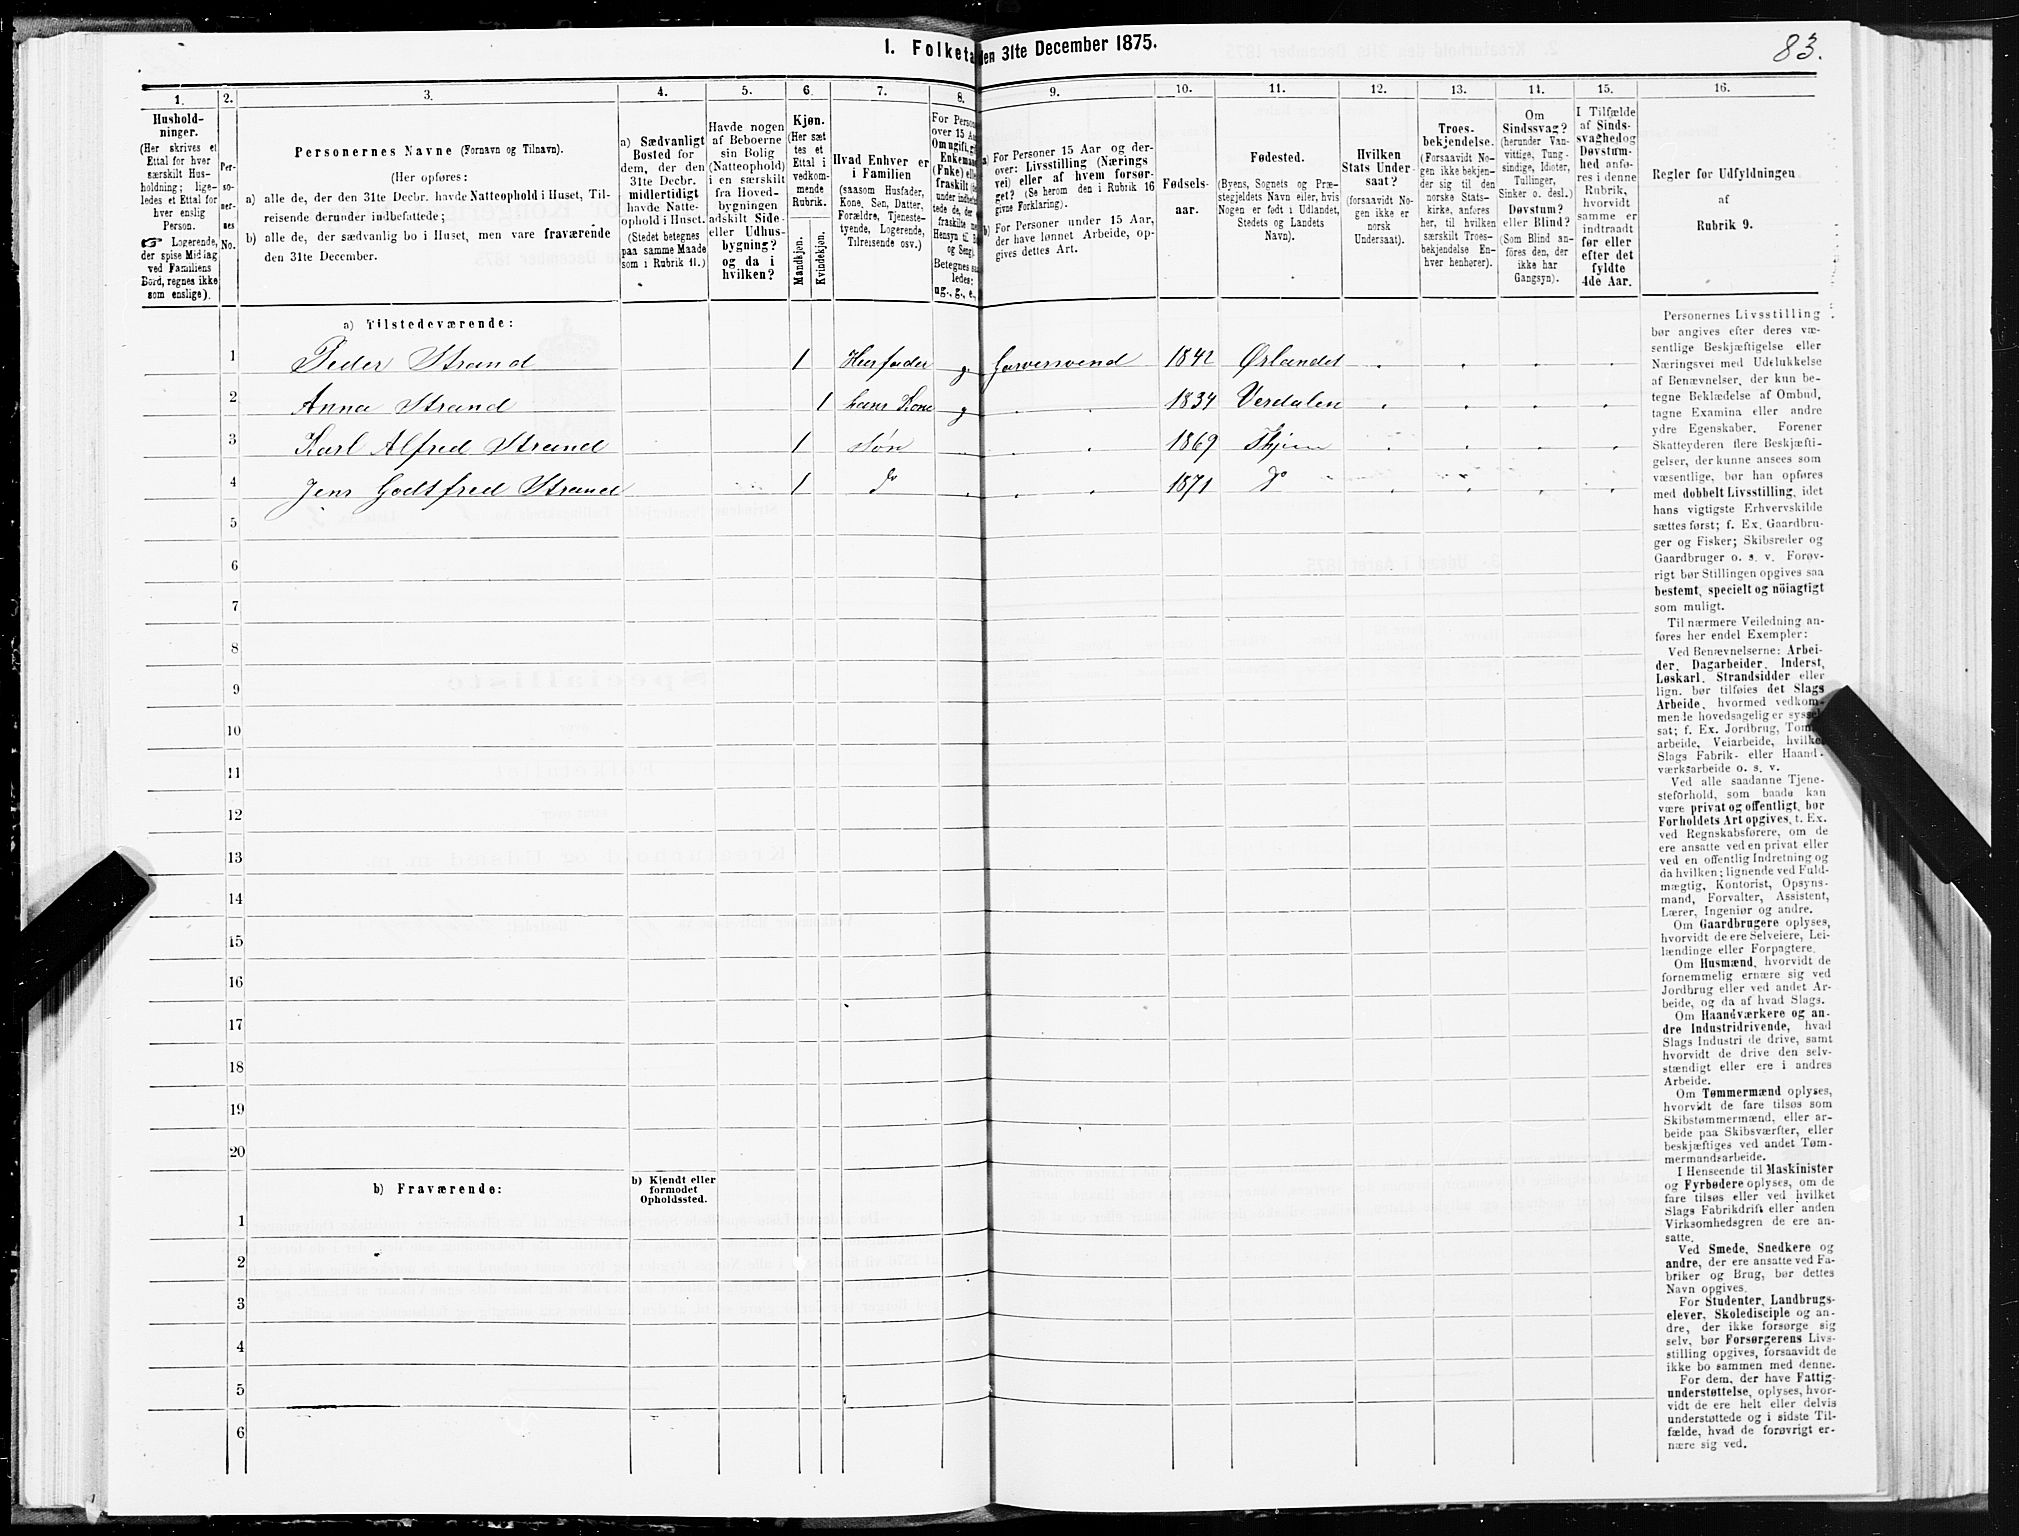 1. Folketa den 31te December 1875.
83.
1. 2. 3. 4. 5. 6. 7. 8. 9. 10. 11. 12. 13. 14. 15. 16.
Hushold-
ninger.
(Her skrives et
Ettal for hver
særskilt Hus-
holdning; lige-
ledes et Ettal for
hver enslig
Person.
☞ Logerende,
der spise Middag
ved Familiens
Bord, regnes ikke
som enslige).
Per-
so-
ner-
nes
No.
Personernes Navne (Fornavn og Tilnavn).
(Her opføres:
a) alle de, der den 31te Decbr. havde Natteophold i Huset, Til-
reisende derunder indbefattede;
b) alle de, der sædvanlig bo i Huset, men vare fraværende
den 31te December.
a) Sædvanligt
Bosted for
dem, der den
31te Decbr.
midlertidigt
havde Natte-
ophold i Huset.
(Stedet betegnes
paa samme Maade
som i Rubrik 11.)
Havde nogen
af Beboerne
sin Bolig
(Natteophold)
i en særskilt
fra Hoved-
bygningen
adskilt Side-
eller Udhus-
bygning?
og da i
hvilken?
Kjøn.
(Her sæt
tes et
Ettal i
vedkom-
mende
Rubrik.
Mandkjøn.
Kvindekjøn.
Hvad Enhver er
i Familien
(saasom Husfader,
Kone, Søn, Datter,
Forældre, Tjeneste-
tyende, Logerende,
Tilreisende osv.)
For Perso
over 15 Aa
Om ugift, gi
Enkema
(Fnke) elle
fraskilt (de
under indbefa
tede de, der
fraskilte m
Hensyn til B
og Seng).
Betegnes sa
ledes:
ug., g., e.,
a) For Personer 15 Aar og der-
over: Livsstilling (Nærings
vei) eller af hvem forsør-
get? (Se herom den i Rubrik 16
givne Forklaring).
b) For Personer under 15 Aar,
der have lønnet Arbeide, op-
gives dettes Art.
Fødsels-
aar.
Fødested.
(Byens, Sognets og Præ-
stegjeldets Navn eller, hvis
Nogen er født i Udlandet,
Stedets og Landets
Navn).
Hvilken
Stats Under-
saat?
(forsaavidt No-
gen ikke er
norsk
Undersaat).
Troes-
bekjendelse.
(Forsaavidt No-
gen ikke bekjen-
der sig til den
norske Stats-
kirke, anføres
her, til hvilken
særskilt Troes-
bekjendelse En-
hver henhører).
Om
Sindssvag?
(herunder Van-
vittige, Tung-
sindige, Idioter,
Tullinger,
Sinker o. desl.)
Døvstum?
eller Blind?
(Som Blind an-
føres den, der
ikke har
Gangsyn).
I Tilfælde
af Sinds-
svaghed og
Døvstum-
hed anfø-
res i denne
Rubrik,
hvorvidt
samme er
indtraadt
før eller
efter det
fyldte
4de Aar.
Regler for Udfyldningen
af
Rubrik 9.
a) Tilstedeværende:
1 Peder Strand 1 Husfader g Garversvend 1842 Ørlandet
2 Anna Strand 1 hans Kone g 1834 Verdalen
3 Karl Alfred Strand 1 Søn 1869 Skjørn
4 Jens Godtfred Strand 1 do 1871 do
5
6
7
8
9
10
11
12
13
14
15
16
17
18
19
20
b) Fraværende:
b) Kjendt eller
formodet
Opholdssted.
1
2
3
4
5
6
Personernes Livsstilling
bør angives efter deres væ-
sentlige Beskjæftigelse eller
Næringsvei med Udelukkelse
af Benævnelser, der kun be-
tegne Beklædelse af Ombud,
tagne Examina eller andre
ydre Egenskaber. Forener
Skatteyderen flere Beskjæfti-
gelser, der kunne ansees som
væsentlige, bør han opføres
med dobbelt Livsstilling, idet
hans vigtigste Erhvervskilde
sættes først; f. Ex. Gaardbru-
ger og Fisker; Skibsreder og
Gaardbruger o. s. v. Forøv-
rigt bør Stillingen opgives saa
bestemt, specielt og nöiagtigt
som muligt.
Til nærmere Veiledning an-
føres her endel Exempler:
Ved Benævnelserne: Arbei-
der, Dagarbeider, Inderst,
Løskarl, Strandsidder eller
lign. bør tilføies det Slags
Arbeide, hvormed vedkom-
mende hovedsagelig er syssel-
sat; f. Ex. Jordbrug, Tømm
arbeide, Veiarbeide, hvilke
Slags Fabrik- eller Haand-
værksarbeide o. s. v.
Ved alle saadanne Tjene-
steforhold, som baade kan
være privat og offentligt, bør
Forholdets Art opgives, t. Ex.
ved Regnskabsførere, om de
ere ansatte ved en privat eller
ved en offentlig Indretning og
da hvilken; lignende ved Fuld-
mægtig, Kontorist, Opsyns-
mand, Forvalter, Assistent,
Lærer, Ingeniør og andre.
Om Gaardbrugere oplyses,
hvorvidt de ere Selveiere, Lei-
lændinge eller Forpagtere.
Om Husmænd, hvorvidt de
fornemmelig ernære sig ved
Jordbrug eller ved andet Ar-
beide, og da af hvad Slags.
Om Haandværkere og an-
dre Industridrivende, hvad
Slags Industri de drive, samt
hvorvidt de drive den selv-
stændigt eller ere i andres
Arbeide.
Om Tømmermænd oplyses,
hvorvidt de fare tilsøs som
Skibstømmermænd, eller ar-
beide paa Skibsværfter, eller
beskjæftiges ved andet Tøm-
mermandsarbeide.
I Henseende til Maskinister
og Fyrbødere oplyses, om de
fare tilsøs eller ved hvilket
Slags Fabrikdrift eller anden
Virksomhedsgren de ere an-
satte.
Ved Smede, Snedkere og
andre, der ere ansatte ved Fa-
briker og Brug, bør dettes
Navn opgives.
For Studenter, Landbrugs-
elever, Skoledisciple og an-
dre, der ikke forsørge sig
selv, bør Forsørgerens Livs-
stilling opgives, forsaavidt de
ikke bo sammen med denne.
For dem, der have Fattig-
understøttelse, oplyses, hvor-
vidt de ere helt eller delvis
understøttede og i sidste Til-
fælde, hvad de forøvrigt er-
nære sig ved.